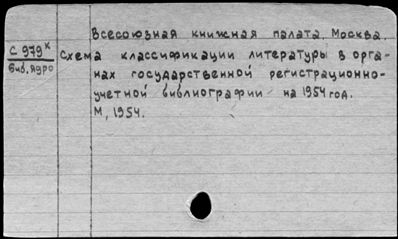 Всесоюзная книжная палата. Москва.
С 979к
Схема классификации литературы в орга-
Биб. ядро
нах государственной регистрационно-
учетной библиографии на 1954 год.
М, 1954.